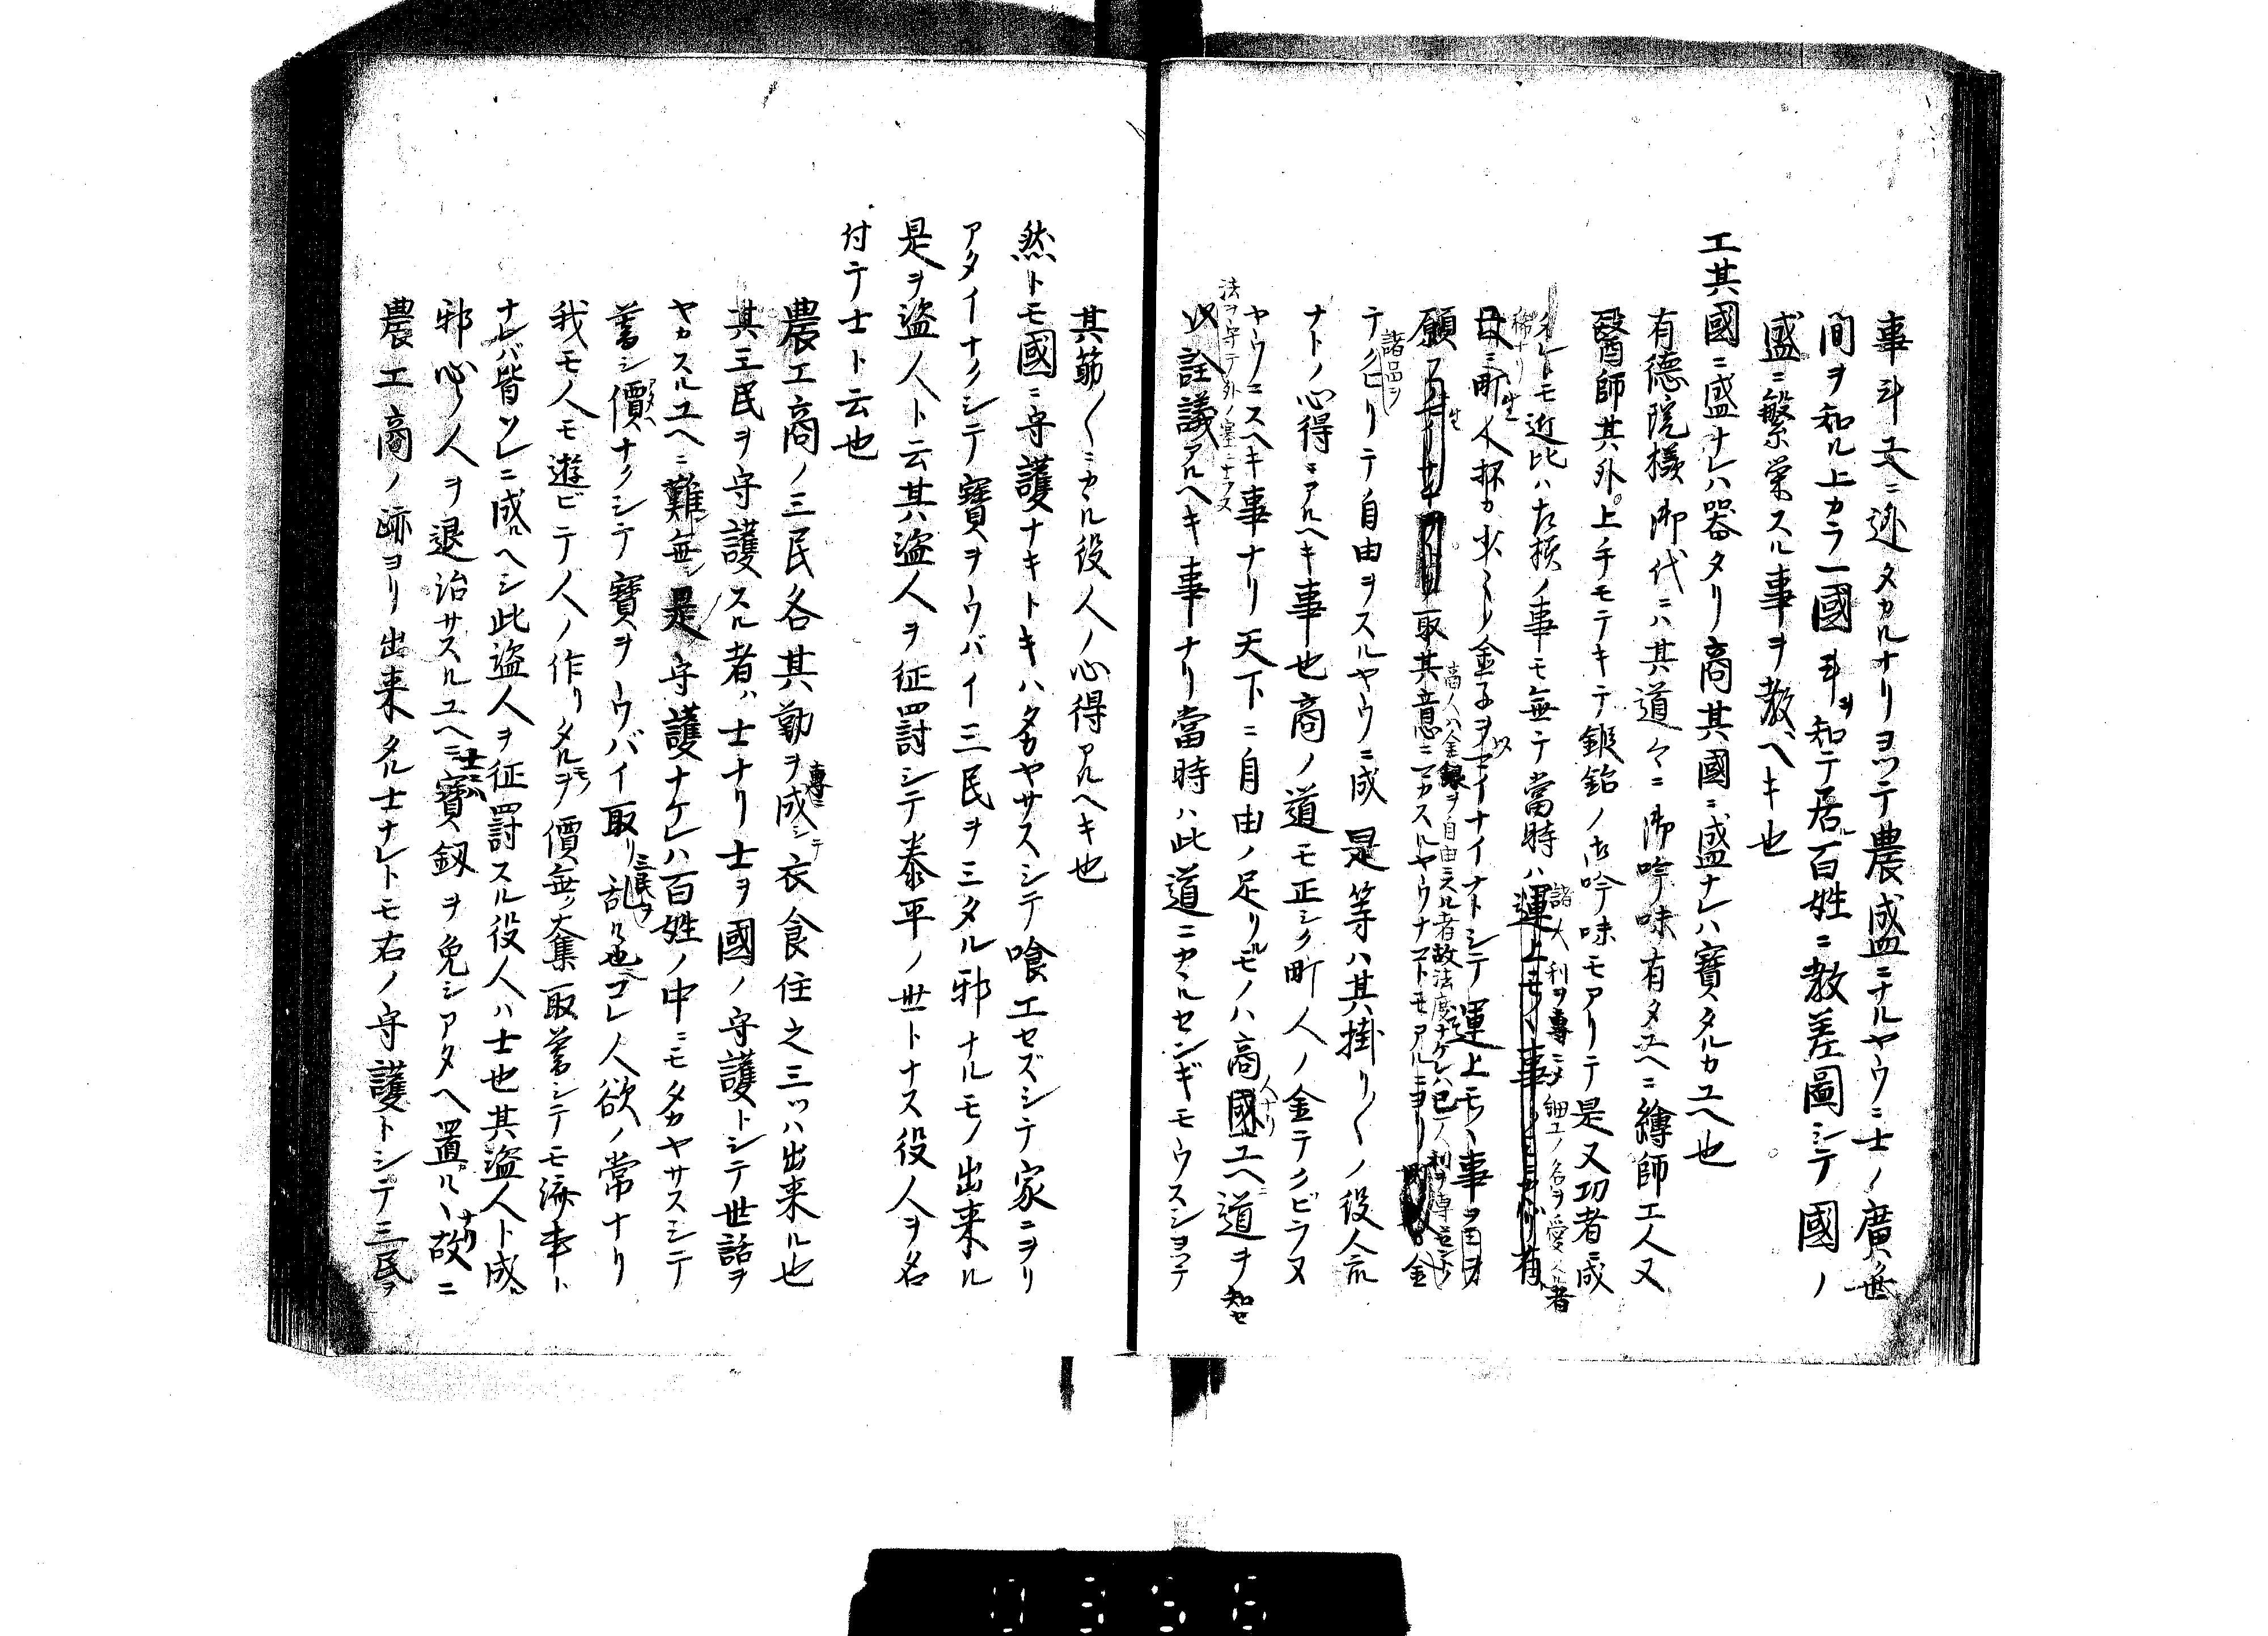 事斗ユヘニ迯タカルナリヨツテ農盛ニナルヤウニ士ノ廣ク世
間ヲ知ル上カラ一國斗ヲ知テ居ル百姓ニ教差圖シテ國ノ
盛ニ繁栄スル事ヲ教ヘキ也
工其國ニ盛ナレハ器タリ商其國ニ盛ナレハ寶タルカユヘ也
有德院様御代ニハ其道々ニ御吟味有タユヘニ縛師工人又
醫師其外上手モテキテ鎚鉛ノ御吟味モアリテ是又功者ニ成
タレトモ近比ハ左様ノ事モ無テ當時ハ運上モノヽ事ノミ有
稀ナリ
諸人利ヲ專ニシテ細工ノ名ヲ愛スル者
日ニ町人杯カ少々ノ金子ヲ以テイナイナトシテ運上モノヽ事ヲ
商人ハ金銀ヲ自由ニスル者故法度ナケレハ己一人利ヲ専
願 取其意ニマカスルヤウナコトモアルニヨリ 金
テクヒリテ自由ヲスルヤウニ成是等ハ其掛リ〳〵ノ役人
諸品ヲ
ナトノ心得ニアルヘキ事也商ノ道モ正シク町人ノ金テクビラヌ
ヤウニスヘキ事ナリ天下ニ自由ノ足リルモノハ商國ユヘ道ヲ知セ
法ヲ守テ外ノ
此詮議アルヘキ事ナリ當時ハ此道ニカヽルセンギモウスシヨツテ
其筋〳〵ニカヽル役人ノ心得アルヘキ也
然トモ國ニ守護ナキトキハタカヤサスシテ喰エセズシテ家ニヲリ
アタイナクシテ寶ヲウバイ三民ヲミタル邪ナルモノ出来ル
是ヲ盗人ト云其ハ盗人ヲ征罸シテ泰平ノ世トナス役人ヲ名
付テ士ト云也
農工商ノ三民各其勤ヲ專ニ成シテ衣食住之三ツハ出来ル也
其三民ヲ守護スル者ハ士ナリ士ヲ國ノ守護トシテ世話ヲ
ヤカスルユヘニ難無シ是守護ナケレハ百姓ノ中ニモタカヤサスシテ
蓄シ價ナクシテ寶ヲウバイ取リ三民ヲ乱ル也コレ人欲ノ常ナリ
我モ人モ遊ビテ人ノ作リタルモノヲ價無ク奪取蓄シテモ済事ト
ナレバ皆ソレニ成ヘシ此盗人ヲ征罸スル役人ハ士也其盗人ト成ル
邪心ノ人ヲ退治サスルユヘニ士ニハ寶釼ヲ免シアタヘ置ルヽナリ故ニ
農工商ノ跡ヨリ出来タル士ナレトモ右ノ守護トシテ三民ヲ
0356